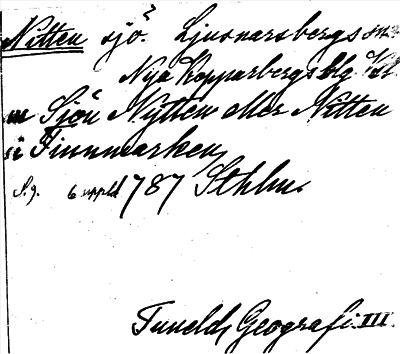 Nitten sjö? Ljusnarsbergs sn
Nya Kopparbergs blg. Vstm.
Sjön Nytten eller Nitten
i Finnmarken,
S. 9. 6 uppl. 1787 Sthlm.
Tuneld, Geografi. III.